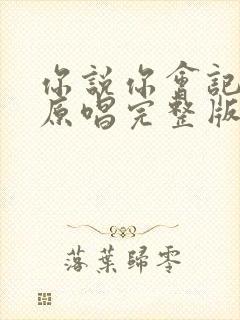 你說你會記
原唱完整版
落葉歸零